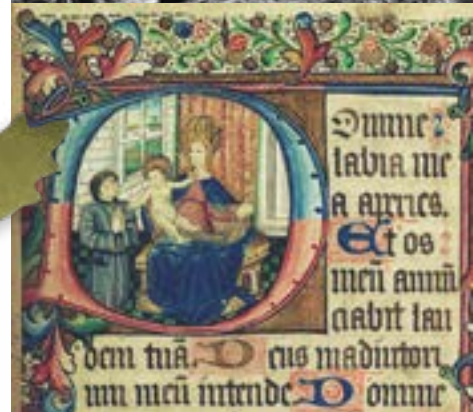 Domine
labia me
a apries.
Et os
meū annū
ciabit lau
dem tuā. Deus in adiutori
um meū intende Domine